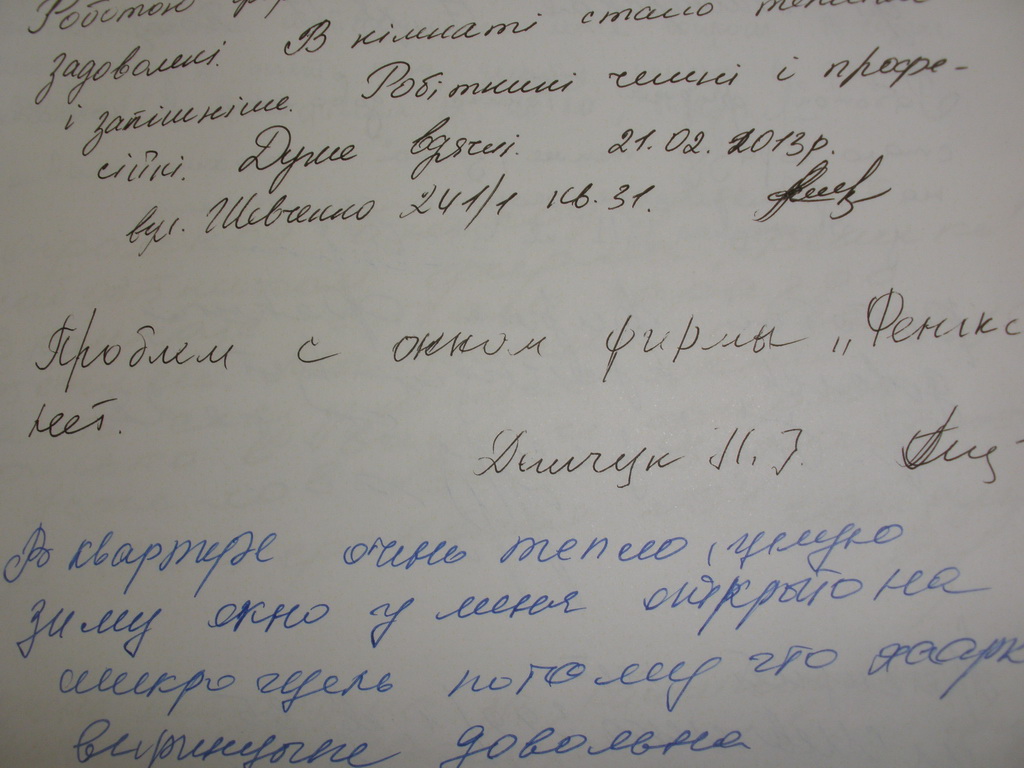 Роботою
задоволені. В кімнаті стало тепліше
і затишніше. Робітники чемні і профе-
сійні. Дуже вдячні. 21.02.2013р.
вул. Шевченко 241/1 кв. 31.
Проблем с окном фирмы „Фенікс
нет.
Демчук Н. З.
В квартире очень тепло, целую
зиму окно у меня открыто на
микрощель потому что жарко
довольна